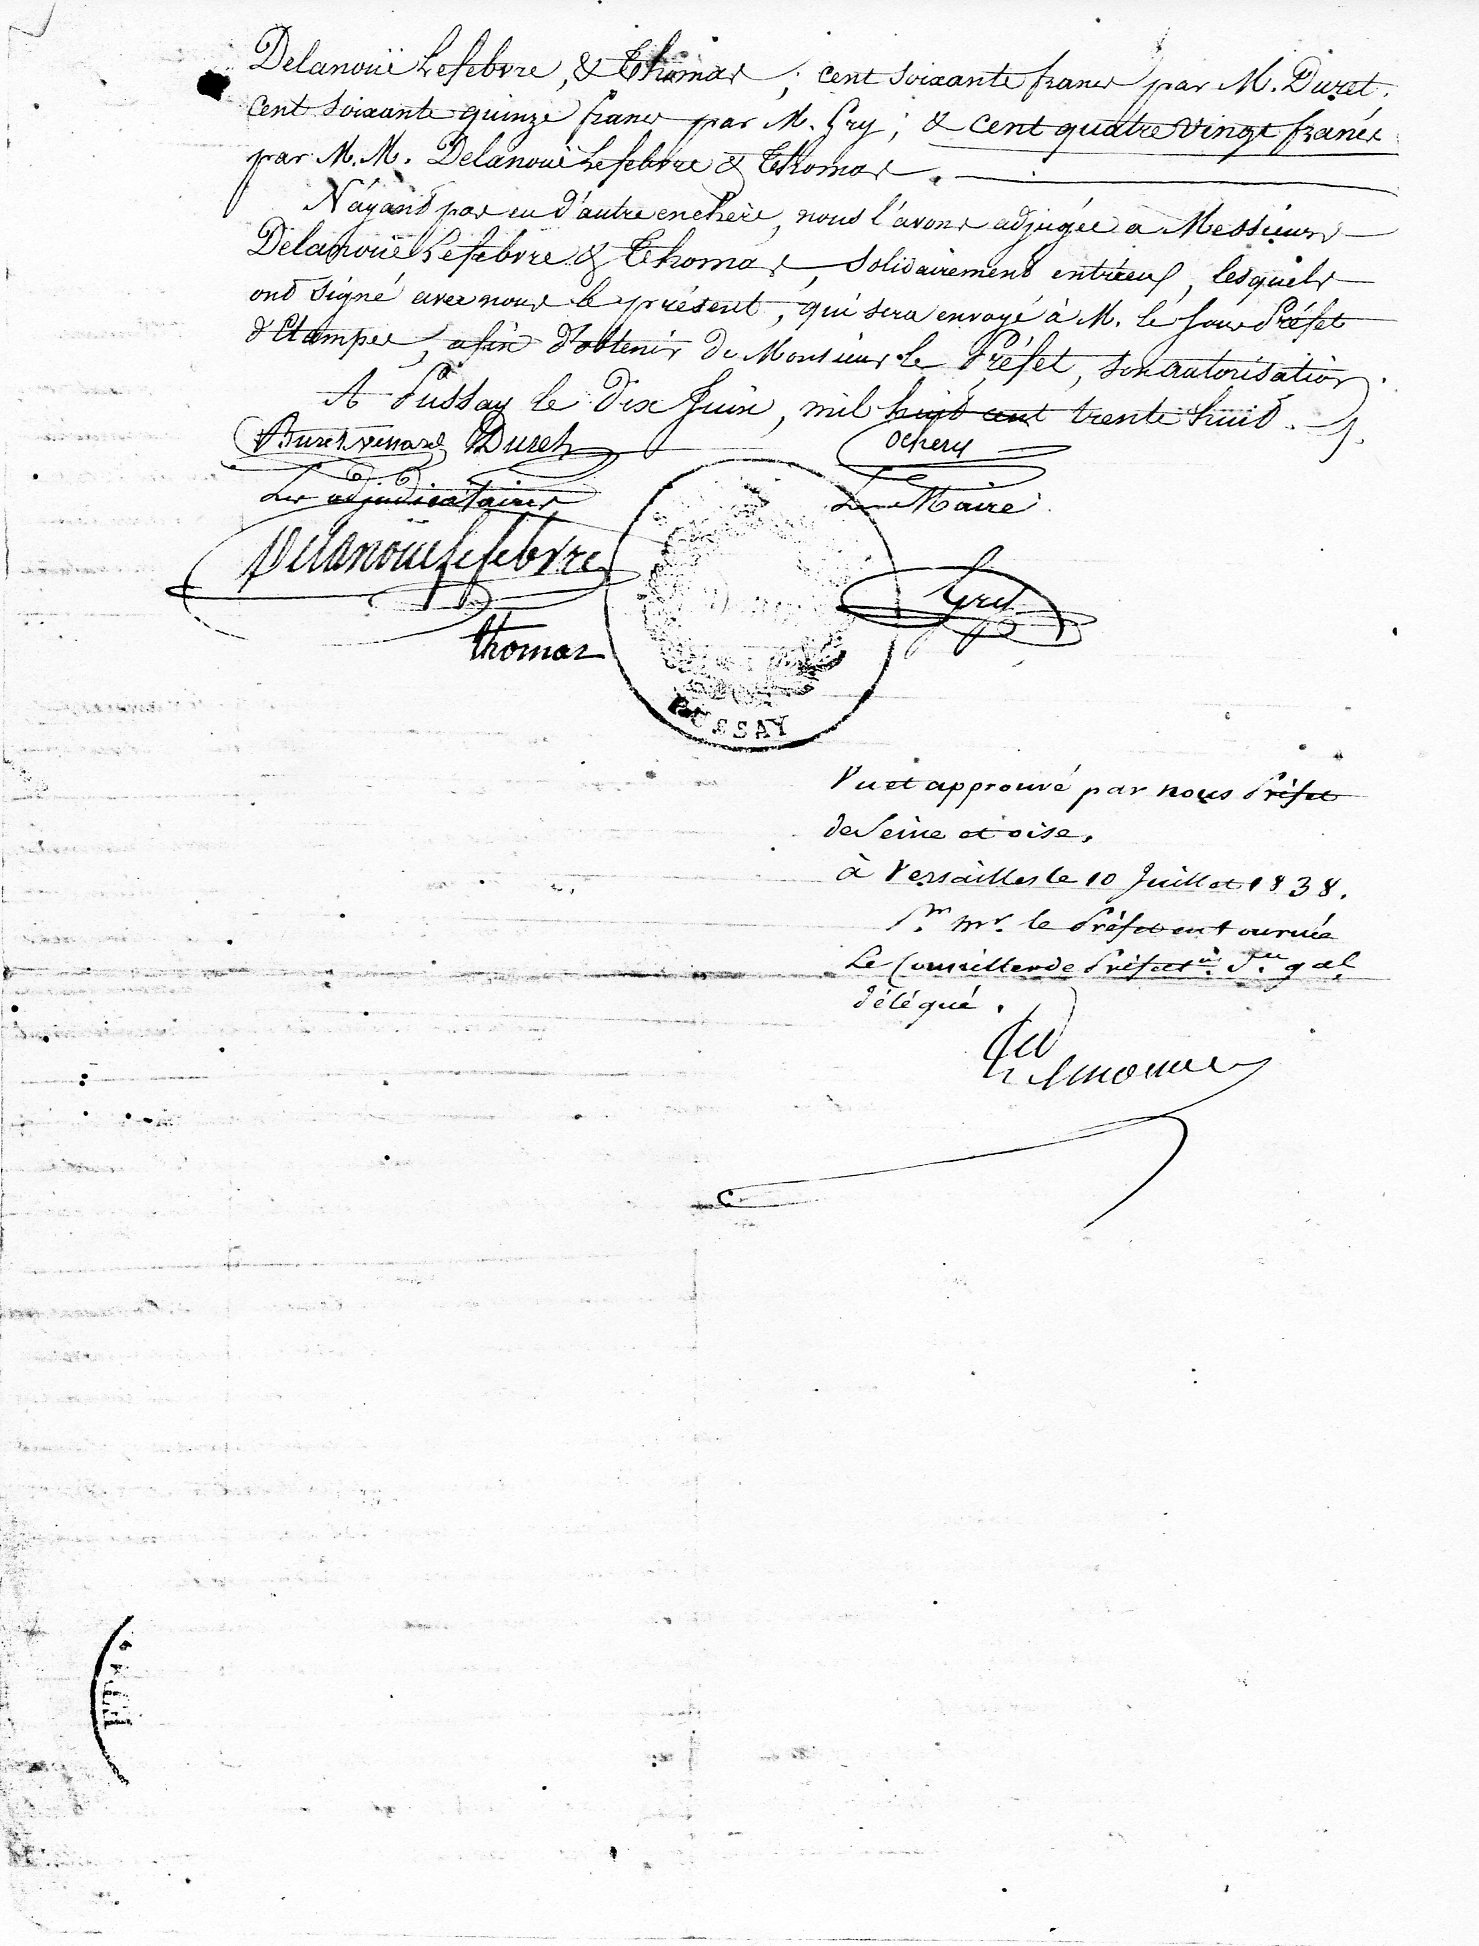 Delanoüe Lefebvre, & Thomas ; cent soixante francs par M. Duret ;
cent soixante quinze francs par M. Gry ; & cent quatre vingt francs
par M.M. Delanoüe Lefebvre & Thomas .
N'ayant pas eu d'autre enchère, nous l'avons adjugée a Messieurs
Delanoüe Lefebvre & Thomas, solidairement entr'eux, lesquels
ont signé avec nous le présent, qui sera envoyé à M. le Sous Préfet
d'Etampes, afin d'obtenir de Monsieur le Préfet, son autorisation.
A Pussay le Dix Juin, mil huit cent trente huit.
Duret Ochery
Les adjudicataires Le Maire
Delanoüe Lefebvre Gry
Thomas
PUSSAY
Vu et approuvé par nous Préfet
de Seine et oise,
à Versailles le 10 Juillet 1838.
Pr. mr. le Préfet en tournée
Le Conseiller de Préfect
délégué.